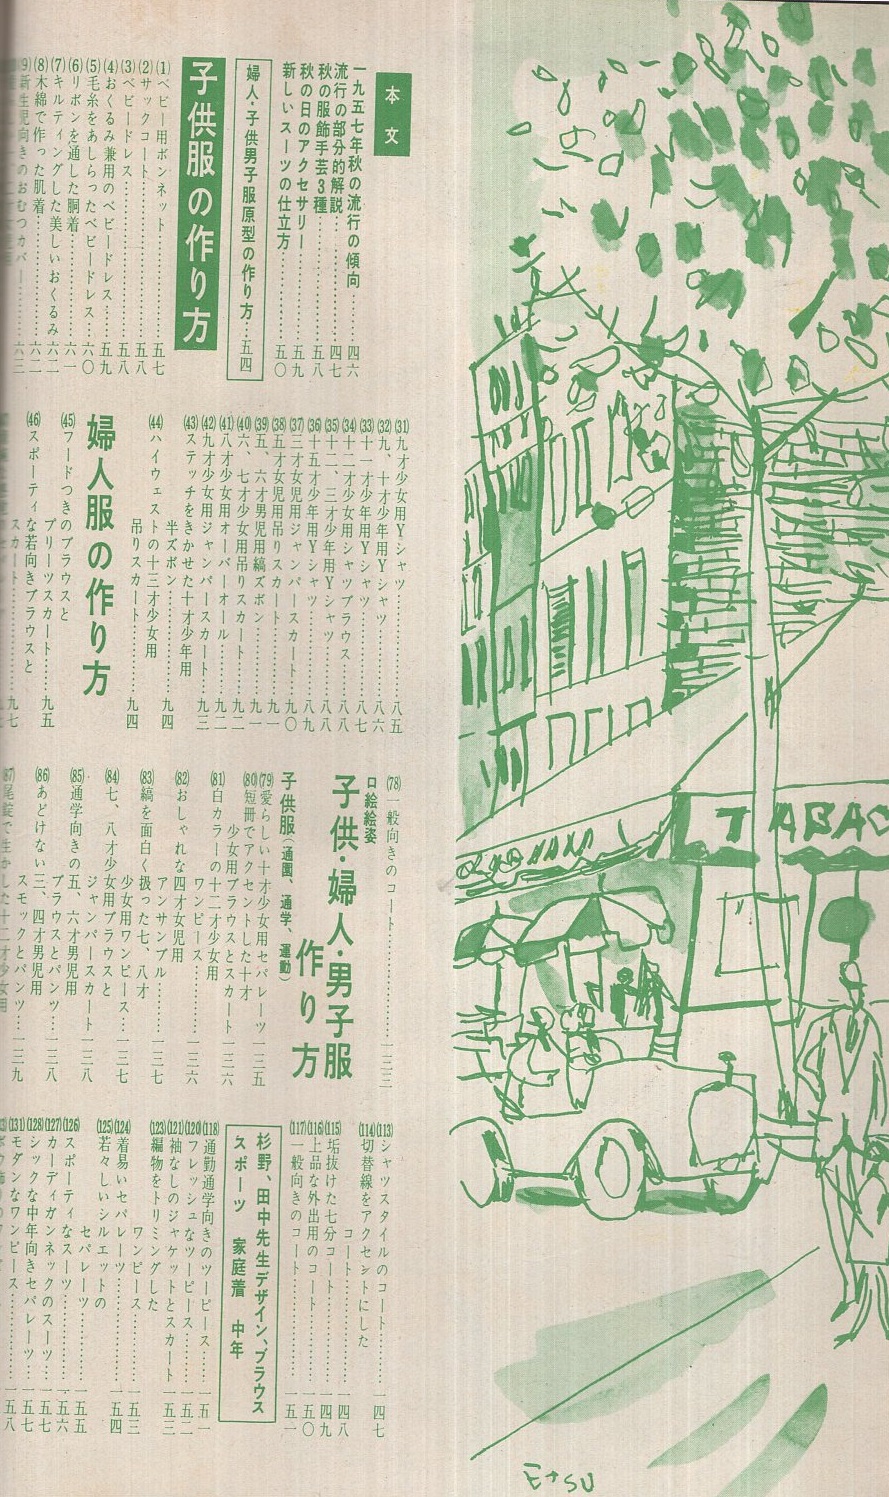 本文
一九五七年秋の流行の傾向……四六
流行の部分的解説……四七
秋の服飾手芸3種……五八
秋の日のアクセサリー……五九
新しいスーツの仕立方……五〇
婦人・子供男子服原型の作り方…五四
子供服の作り方
(1)ベビー用ボンネット……五七
(2)サックコート……五八
(3)ベビードレス……五八
(4)おくるみ兼用のベビードレス…五九
(5)毛糸をあしらったベビードレス…六〇
(6)リボンを通した胴着……六一
(7)キルティングした美しいおくるみ六二
(8)木綿で作った肌着……六二
(9)新生児向きのおむつカバー……六三
(31)九才少女用Yシャツ……八五
(32)九、十才少年用Yシャツ……八六
(33)十一才少年用Yシャツ……八七
(34)十二才少女用シャツブラウス……八八
(35)十二、三才少年用Yシャツ……八八
(36)十五才少年用Yシャツ……八九
(37)三才女児用ジャンパースカート…九〇
(38)五才女児用吊りスカート……九一
(39)五、六才男児用縞ズボン……九一
(40)六、七才少女用吊りスカート…九二
(41)八才少女用オーバーオール……九二
(42)九才少女用ジャンパースカート…九三
(43)ステッチをきかせた十才少年用
半ズボン……九四
(44)ハイウェストの十三才少女用
吊りスカート……九四
婦人服の作り方
(45)フードつきのブラウスと
プリーツスカート……九五
(46)スポーティな若向きブラウスと
スカート……九七
(78)一般向きのコート……一三三
口絵絵姿
子供・婦人・男子服
作り方
子供服(通園、通学、運動)
(79)愛らしい十才少女用セパレーツ一三五
(80)短冊でアクセントした十才
少女用ブラウスとスカート…一三六
(81)白カラーの十二才少女用
ワンピース……一三六
(82)おしゃれな四才女児用
アンサンブル……一三七
(83)縞を面白く扱った七、八才
少女用ワンピース…一三七
(84)七、八才少女用ブラウスと
ジャンパースカート一三八
(85)通学向きの五、六才男児用
ブラウスとパンツ…一三八
(86)あどけない三、四才男児用
スモックとパンツ…一三九
(87)尾錠で生かした十二才少女用
(113)シャツスタイルのコート……一四七
(114)切替線をアクセントにした
コート……一四八
(115)垢抜けた七分コート……一四九
(116)上品な外出用のコート……一五〇
(117)一般向きのコート……一五一
杉野、田中先生デザイン、ブラウス
スポーツ 家庭着 中年
(118)通勤通学向きのツーピース……一五一
(120)フレッシュなツーピース……一五二
(121)袖なしのジャケットとスカート一五三
(123)編物をトリミングした
ワンピース……一五三
(124)着易いセパレーツ……一五四
(125)若々しいシルエットの
セパレーツ……一五五
(126)スポーティなスーツ……一五六
(127)カーディガンネックのスーツ…一五七
(128)シックな中年向きセパレーツ…一五七
(131)モダンなワンピース……一五八
TABAC
Etsu